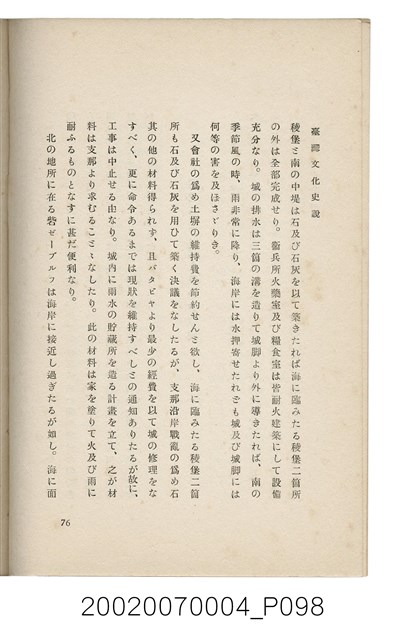 臺灣文化史說
稜堡と南の中堤は石及び石灰を以て築きたれば海に臨みたる稜堡二箇所
の外は全部完成せり。衞兵所火藥室及び糧食室は皆耐火建築にして設備
充分なり。城の排水は三箇の溝を造りて城脚より外に導きたれば、南の
季節風の時、雨非常に降り、海岸には水押寄せたれども城及び城脚には
何等の害を及ほさゞりき。
又會社の爲め土塀の維持費を節約せんと欲し、海に臨みたる稜堡二箇
所も石及び石灰を用ひて築く決議をなしたるが、支那沿岸戰亂の爲め石
其の他の材料得られず、且バタビヤより最少の經費を以て城の修理をな
すべく、更に命令あるまでは現狀を維持すべしとの通知ありたるが故に、
工事は中止せる由なり。城内に雨水の貯藏所を造る計畫を立て、之が材
料は支那より求むることゝなしたり。此の材料は家を塗りて火及び雨に
耐ふるものとなすに甚だ便利なり。
北の地所に在る砦ゼーブルフは海岸に接近し過ぎたるが如し。海に面
76
20020070004_P098